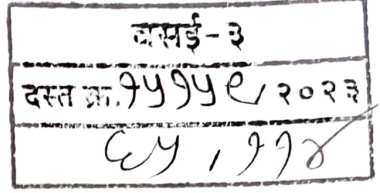 वसई-३
दस्त क्र.१५१५९/२०२३
६५/११४